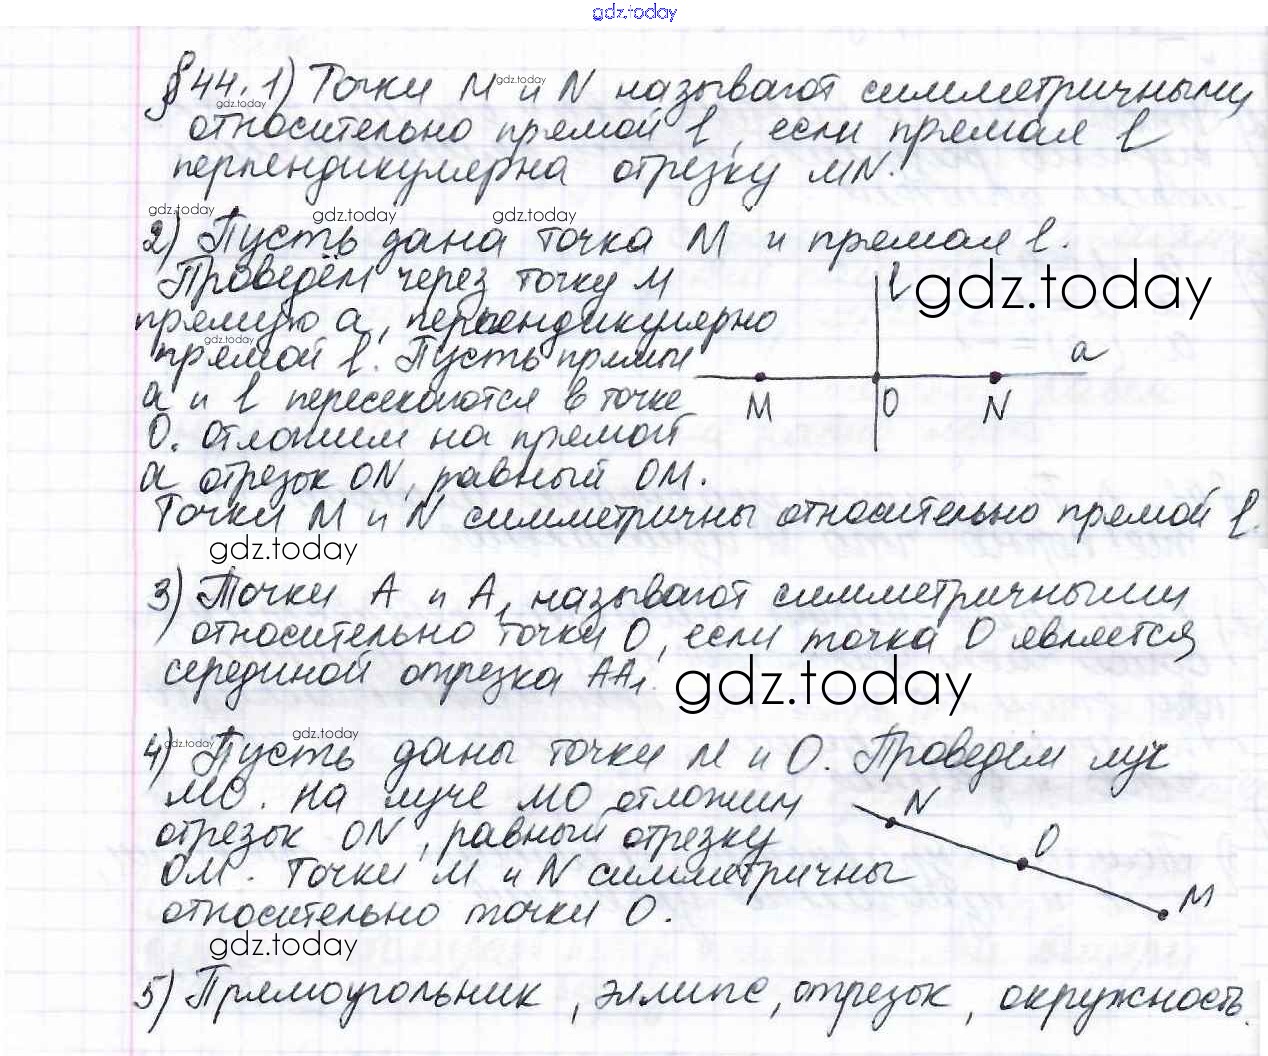 gdz.today
§44. 1) Точки M и N называют симметричными
относительно прямой l, если прямая l
перпендикулярна отрезку MN.
2) Пусть дана точка M и прямая l.
Проведём через точку M
прямую a, перпендикулярно
прямой l. Пусть прямые
a и l пересекаются в точке
O. Отложим на прямой
a отрезок ON, равный OM.
Точки M и N симметричны относительно прямой l.
l
a
M
O
N
3) Точки A и A₁ называют симметричными
относительно точки O, если точка O является
серединой отрезка AA₁.
4) Пусть даны точки M и O. Проведём луч
MO. На луче MO отложим
отрезок ON, равный отрезку
OM. Точки M и N симметричны
относительно точки O.
N
O
M
5) Прямоугольник, эллипс, отрезок, окружность.
gdz.today
gdz.today
gdz.today
gdz.today
gdz.today
gdz.today
gdz.today
gdz.today
gdz.today
gdz.today
gdz.today
gdz.today
gdz.today